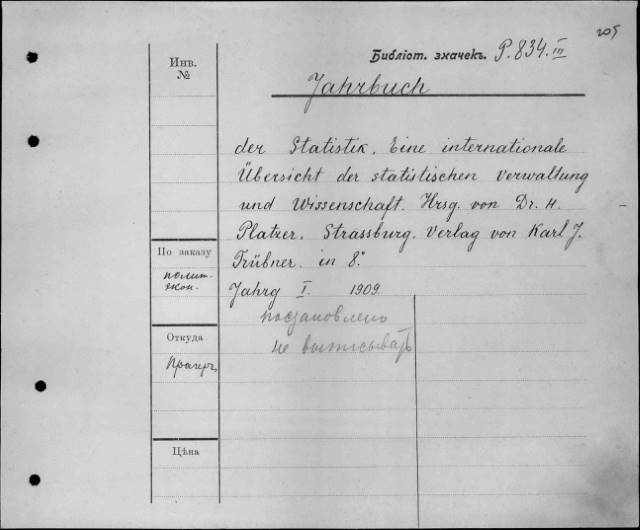 205
Библіот. значекъ. P. 834. III
Инв.
№
Jahrbuch
der Statistik. Eine internationale
Übersicht der statistischen Verwaltung
und Wissenschaft. Hrsg. von Dr. H.
Platzer. Strassburg. Verlag von Karl J.
Trübner. in 8°.
Jahrg I. 1909.
По заказу
полит.
экон.
постановлено
не выписывать
Откуда
Прагеръ
Цѣна